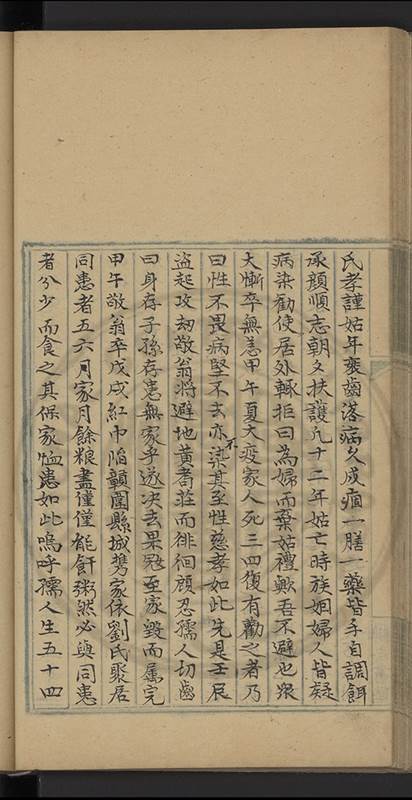 氏孝謹姑年衰齒落病久成痼一膳一藥皆手自調餌
承顏順志朝夕扶護凡十二年姑亡時族姻婦人皆疑
病染勸使居外輒拒曰為婦而棄姑禮歟吾不避也衆
大慚卒無恙甲午夏大疫家人死三四復有勸之者乃
曰性不畏病堅不去亦不染其至性慈孝如此先是壬辰
盜起攻刼敬翁將避地黃耆莊而徘徊顧忍孺人切齒
曰身存子孫存患無家乎遂決去果冦至家毀而屬完
甲午敬翁卒戊戌紅巾陷贛圍縣城携家依劉氏聚居
同患者五六月家月餘粮盡僅僅能飦粥然必與同患
者分少而食之其保家恤患如此嗚呼孺人生五十四